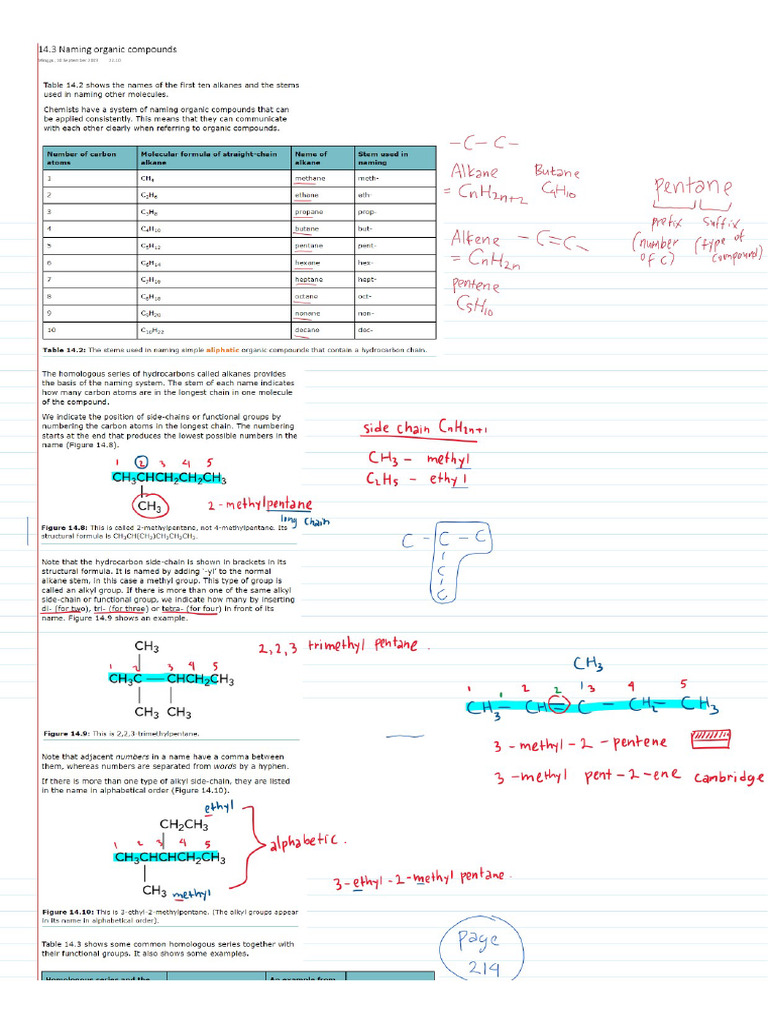 14.3 Naming organic compounds
Minggu, 10 September 2023 22.10
Table 14.2 shows the names of the first ten alkanes and the stems
used in naming other molecules.
Chemists have a system of naming organic compounds that can
be applied consistently. This means that they can communicate
with each other clearly when referring to organic compounds.
Number of carbon atoms Molecular formula of straight-chain alkane Name of alkane Stem used in naming
1 CH₄ methane meth-
2 C₂H₆ ethane eth-
3 C₃H₈ propane prop-
4 C₄H₁₀ butane but-
5 C₅H₁₂ pentane pent-
6 C₆H₁₄ hexane hex-
7 C₇H₁₆ heptane hept-
8 C₈H₁₈ octane oct-
9 C₉H₂₀ nonane non-
10 C₁₀H₂₂ decane dec-
Table 14.2: The stems used in naming simple aliphatic organic compounds that contain a hydrocarbon chain.
-C-C-
Alkane Butane
= CnH2n+2 C4H10
Alkene -C=C-
= CnH2n
pentene
C5H10
pentane
prefix suffix
(number (type of
of C) compound)
The homologous series of hydrocarbons called alkanes provides
the basis of the naming system. The stem of each name indicates
how many carbon atoms are in the longest chain in one molecule
of the compound.
We indicate the position of side-chains or functional groups by
numbering the carbon atoms in the longest chain. The numbering
starts at the end that produces the lowest possible numbers in the
name (Figure 14.8).
side chain CnH2n+1
CH3 - methyl
C2H5 - ethyl
1 2 3 4 5
CH₃CHCH₂CH₂CH₃
CH₃
2-methylpentane
long chain
Figure 14.8: This is called 2-methylpentane, not 4-methylpentane. Its
structural formula is CH₃CH(CH₃)CH₂CH₂CH₃.
C - C - C
C
C
Note that the hydrocarbon side-chain is shown in brackets in its
structural formula. It is named by adding '-yl' to the normal
alkane stem, in this case a methyl group. This type of group is
called an alkyl group. If there is more than one of the same alkyl
side-chain or functional group, we indicate how many by inserting
di- (for two), tri- (for three) or tetra- (for four) in front of its
name. Figure 14.9 shows an example.
CH₃
1 2 3 4 5
CH₃C — CHCH₂CH₃
CH₃ CH₃
2,2,3 trimethyl pentane.
Figure 14.9: This is 2,2,3-trimethylpentane.
CH3
1 1 2 2 3 4 5
CH3 - CH = C - CH2 - CH3
3-methyl-2-pentene
3-methyl pent-2-ene cambridge
Note that adjacent numbers in a name have a comma between
them, whereas numbers are separated from words by a hyphen.
If there is more than one type of alkyl side-chain, they are listed
in the name in alphabetical order (Figure 14.10).
ethyl
CH₂CH₃
1 2 3 4 5
CH₃CHCHCH₂CH₃
CH₃ methyl
alphabetic.
3-ethyl-2-methyl pentane.
Figure 14.10: This is 3-ethyl-2-methylpentane. (The alkyl groups appear
in its name in alphabetical order).
page
214
Table 14.3 shows some common homologous series together with
their functional groups. It also shows some examples.
Homologous series and the An example from